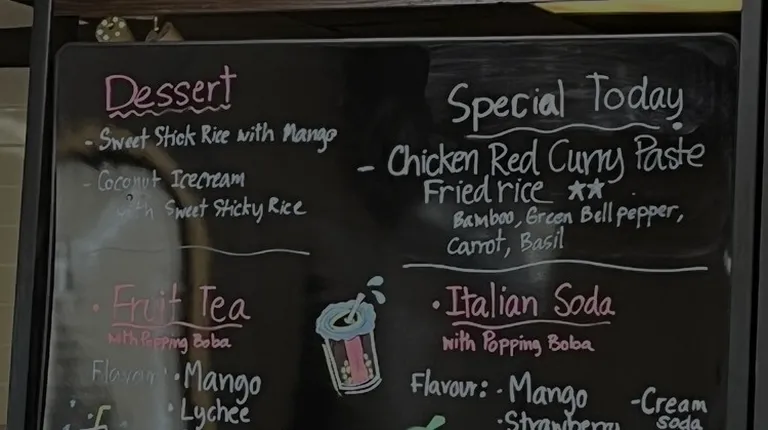 Dessert
- Sweet Stick Rice with Mango
- Coconut Icecream
with Sweet Sticky Rice
Special Today
- Chicken Red Curry Paste
Fried rice ★★
Bamboo, Green Bell pepper,
Carrot, Basil
• Fruit Tea
with Popping Boba
Flavour: • Mango
• Lychee
• Italian Soda
with Popping Boba
Flavour: • Mango
• Strawberry
- Cream
soda